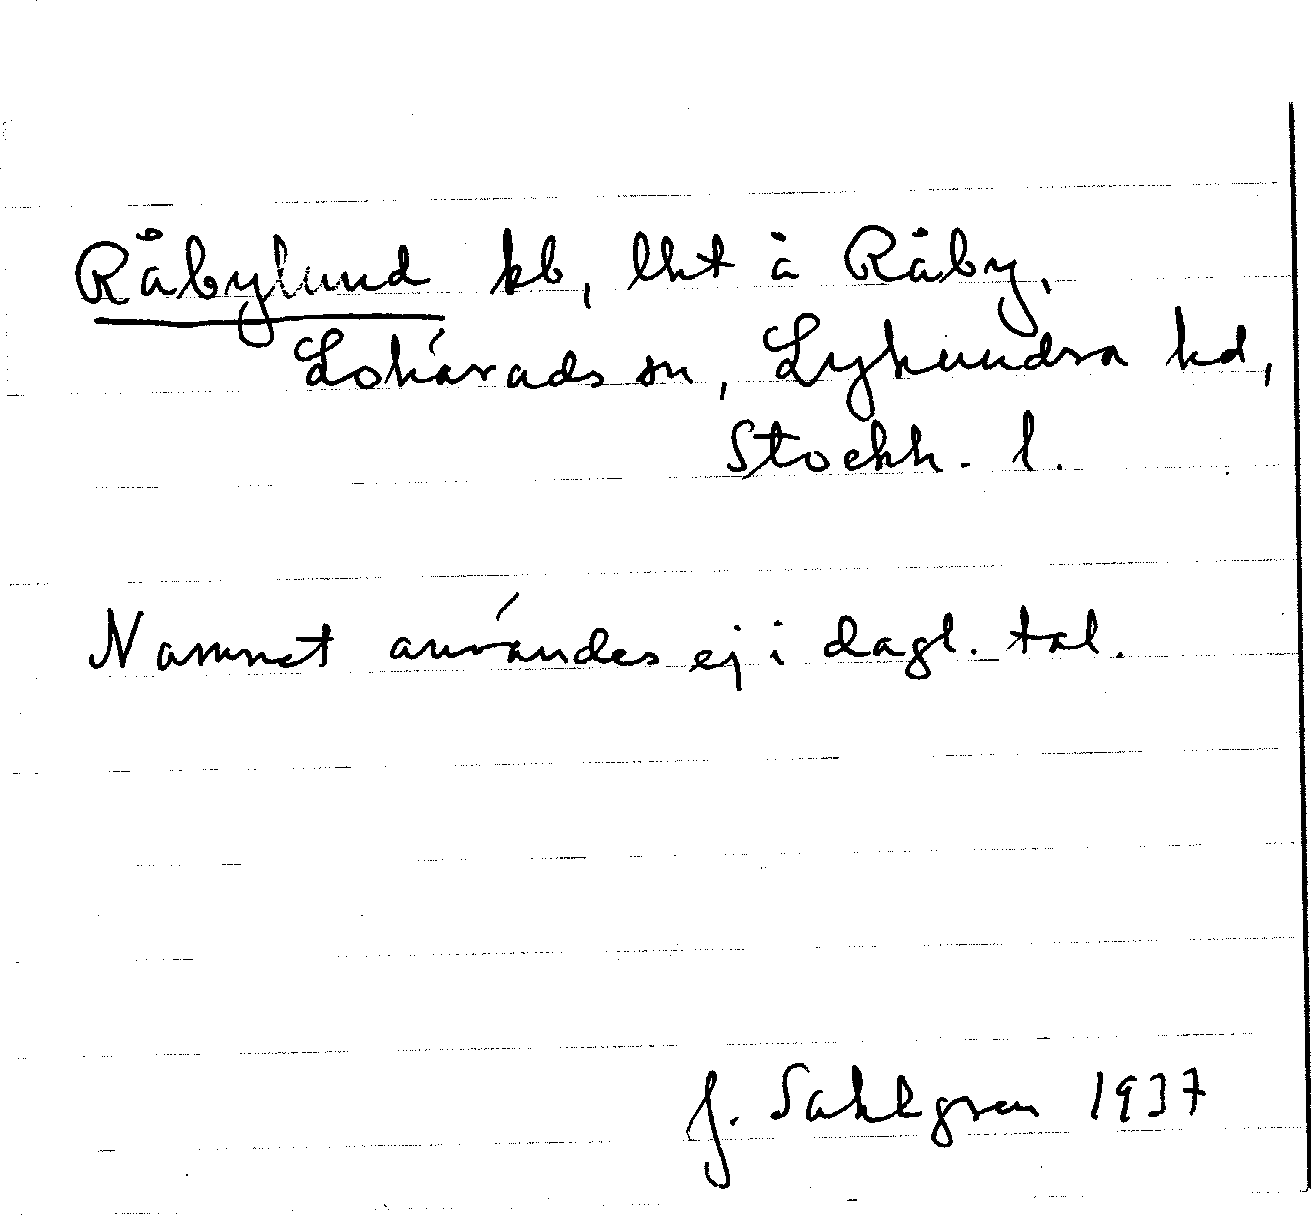 Råbylund kb, lht å Råby,
Lohärads sn, Lyhundra hd,
Stockh. l.
Namnet användes ej i dagl. tal.
J. Sahlgren 1937